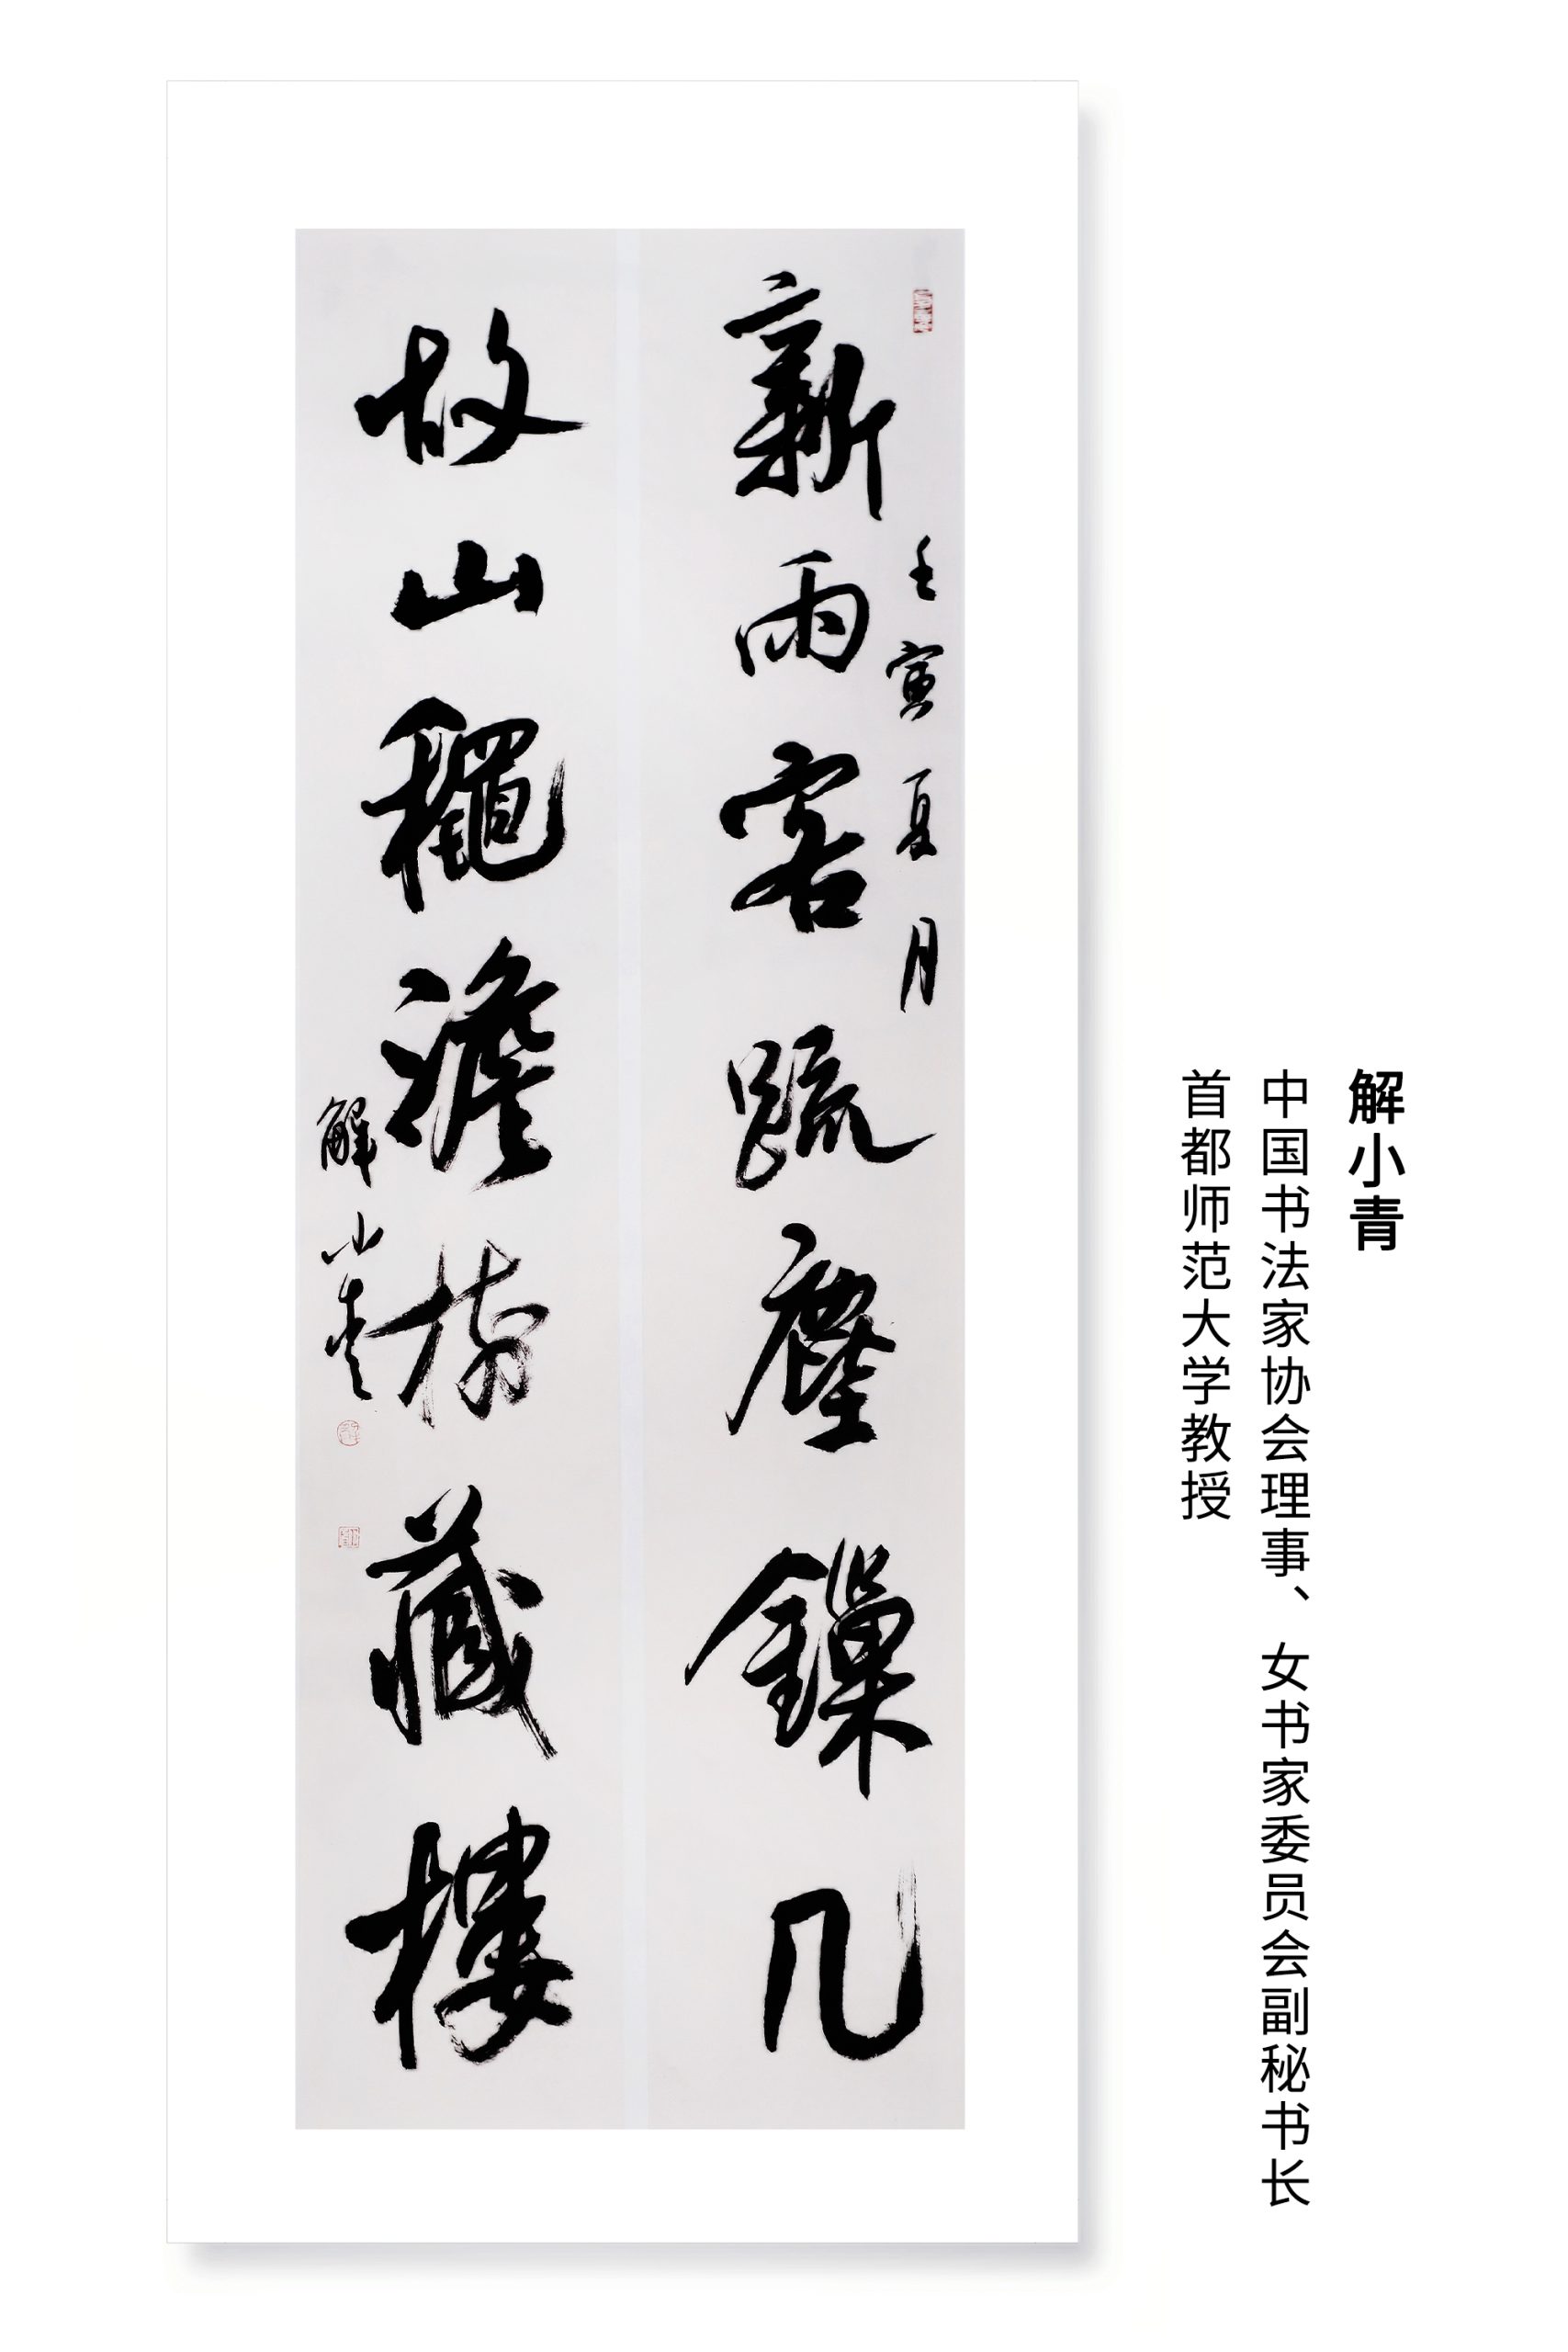 新雨客疏塵鏁几
壬寅夏月
故山穐澹藏樓
解小青
解小青
中国书法家协会理事、女书家委员会副秘书长
首都师范大学教授